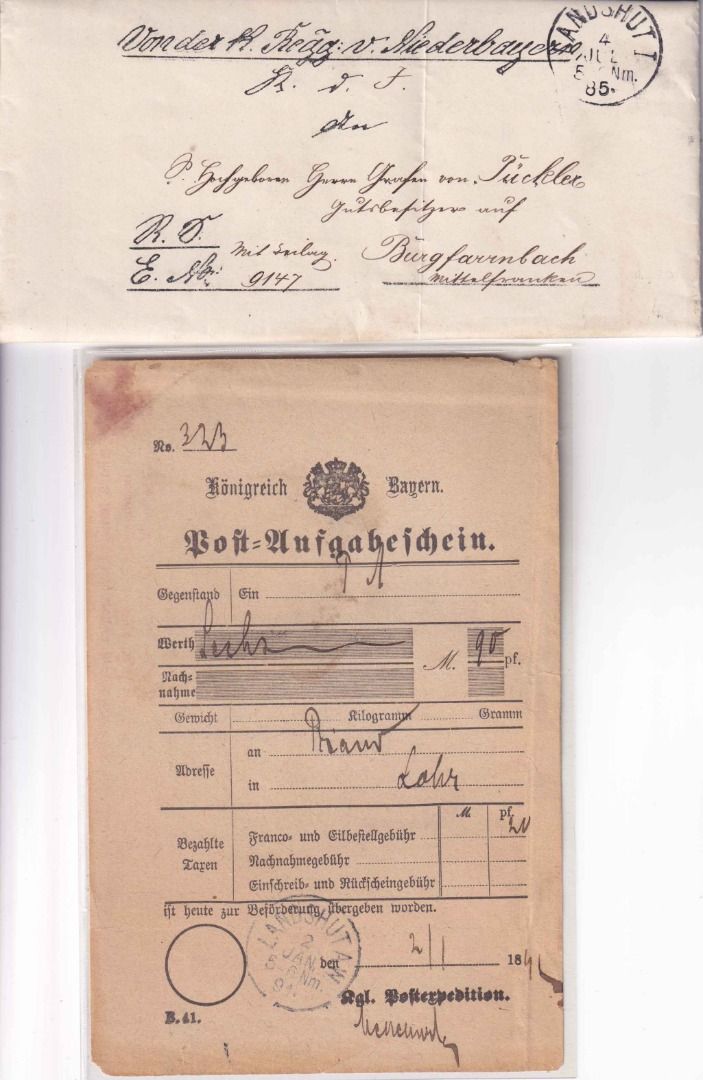 Von der K. Regg: v. Niederbayern
K. d. J.
An
S. Hochgeboren Herrn Grafen von Pückler
Gutsbesitzer auf
R. S.
Mit Beilag.
Burgfarrnbach
E. No: 9147
Mittelfranken
LANDSHUT I
4
JUL
5-6 Nm.
85.
No. 323
Königreich Bayern.
Post-Aufgabeschein.
Gegenstand Ein P A
Werth Sechs M. 90 pf.
Nach-
nahme
Gewicht Kilogramm Gramm
Adresse an
in Lohr
M. pf.
Bezahlte Taxen
Franco- und Eilbestellgebühr 20
Nachnahmegebühr
Einschreib- und Rückscheingebühr
ist heute zur Beförderung übergeben worden.
LANDSHUT A/W
2
JAN.
5-6 Nm.
91.
den 2/1 1891
Kgl. Postexpedition.
B. 41.